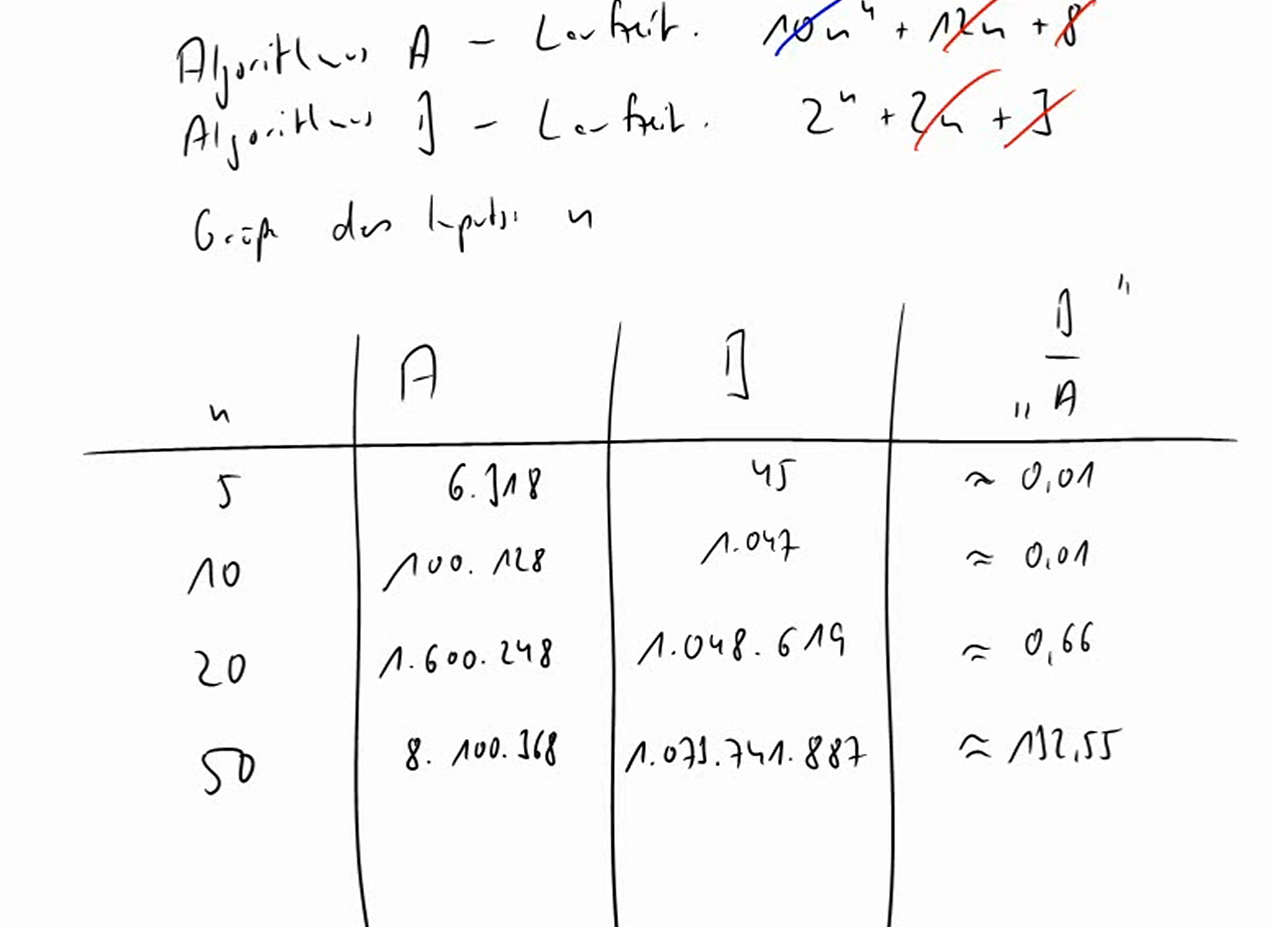 Algorithmus A – Laufzeit: 10n⁴ + 12n + 8
Algorithmus B – Laufzeit: 2ⁿ + 2n + 3
Größe des Inputs: n
n A B „B/A"
5 6.318 45 ≈ 0,01
10 100.128 1.047 ≈ 0,01
20 1.600.248 1.048.619 ≈ 0,66
50 8.100.368 1.073.741.887 ≈ 132,55